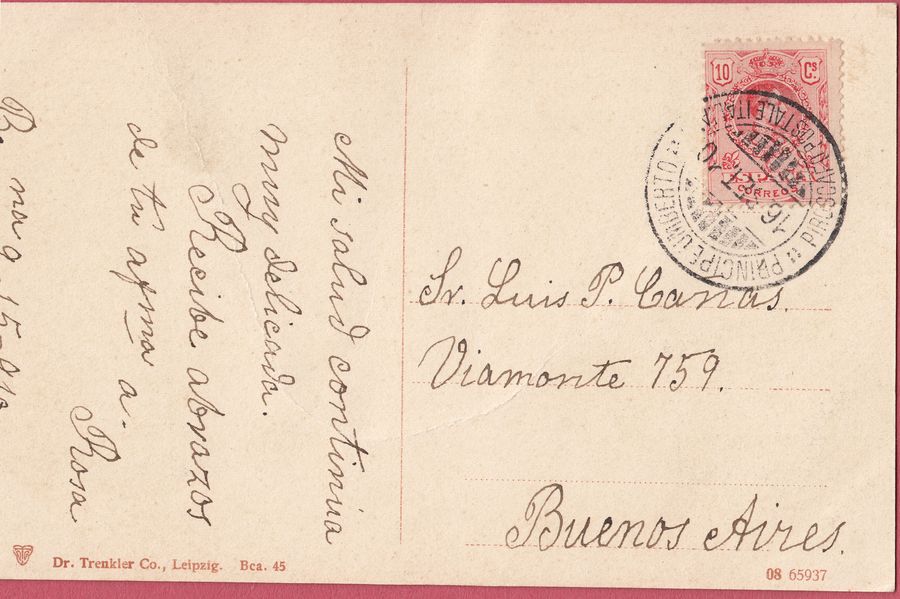 Mi salud continúa
muy delicada.
Recibe abrazos
de tu afma a.
Rosa
10 Cs
CORREOS
PIROSCAFO POSTALE ITAL
PRINCIPE UMBERTO
Sr. Luis P. Canas.
Viamonte 759.
Buenos Aires.
Dr. Trenkler Co., Leipzig. Bca. 45
08 65937